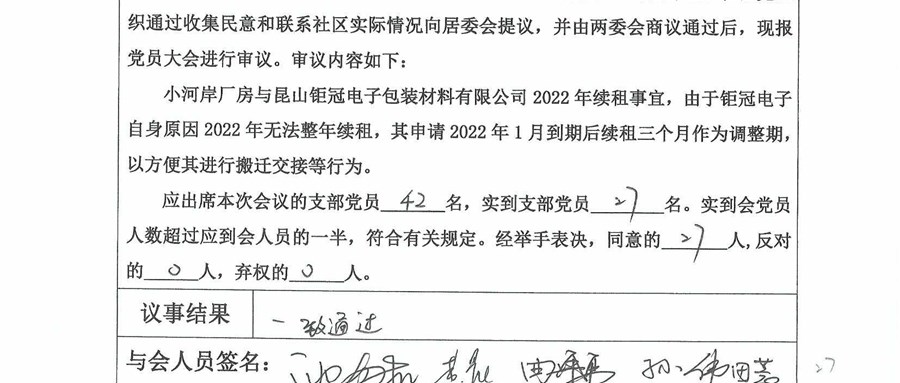 织通过收集民意和联系社区实际情况向居委会提议，并由两委会商议通过后，现报
党员大会进行审议。审议内容如下：
小河岸厂房与昆山钜冠电子包装材料有限公司 2022 年续租事宜，由于钜冠电子
自身原因 2022 年无法整年续租，其申请 2022 年 1 月到期后续租三个月作为调整期，
以方便其进行搬迁交接等行为。
应出席本次会议的支部党员 42 名，实到支部党员 27 名。实到会党员
人数超过应到会人员的一半，符合有关规定。经举手表决，同意的 27 人，反对
的 0 人，弃权的 0 人。
议事结果 一致通过
与会人员签名：
27